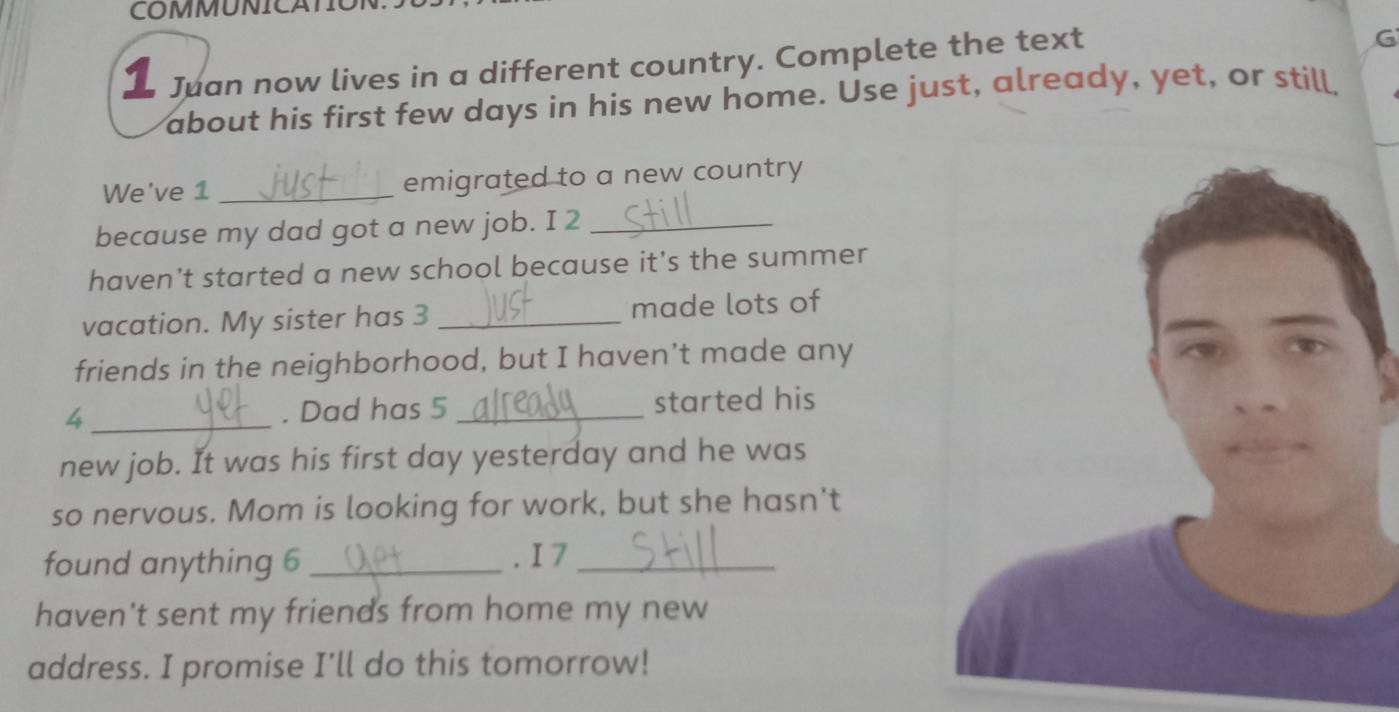 COMMUNICATION.
1 Juan now lives in a different country. Complete the text
about his first few days in his new home. Use just, already, yet, or still.
We've 1 just emigrated to a new country
because my dad got a new job. I 2 still
haven't started a new school because it's the summer
vacation. My sister has 3 Just made lots of
friends in the neighborhood, but I haven't made any
4 yet . Dad has 5 already started his
new job. It was his first day yesterday and he was
so nervous. Mom is looking for work, but she hasn't
found anything 6 yet . I 7 Still
haven't sent my friends from home my new
address. I promise I'll do this tomorrow!